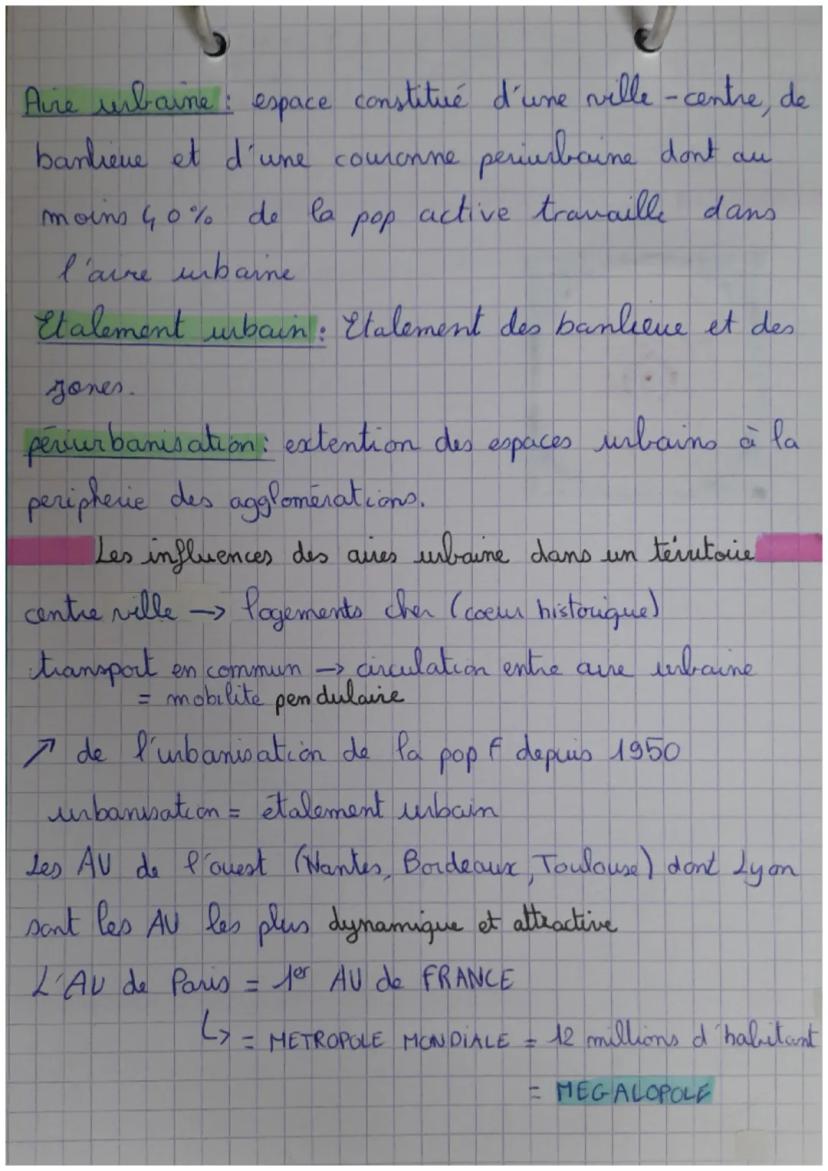 Aire urbaine : espace constitué d'une ville-centre, de
banlieue et d'une couronne periurbaine dont au
moins 40% de la pop active travaille dans
l'aire urbaine
Etalement urbain : Etalement des banlieue et des
zones.
périurbanisation : extention des espaces urbains à la
peripherie des agglomérations.
Les influences des aires urbaine dans un térritoire
centre ville → logements cher (coeur historique)
transport en commun → circulation entre aire urbaine
= mobilité pendulaire
↗ de l'urbanisation de la pop F depuis 1950
urbanisation = étalement urbain
Les AU de l'ouest (Nantes, Bordeaux, Toulouse) dont Lyon
sont les AU les plus dynamique et attractive
L'AU de Paris = 1er AU de FRANCE
↳ = METROPOLE MONDIALE = 12 millions d'habitant
= MEGALOPOLE